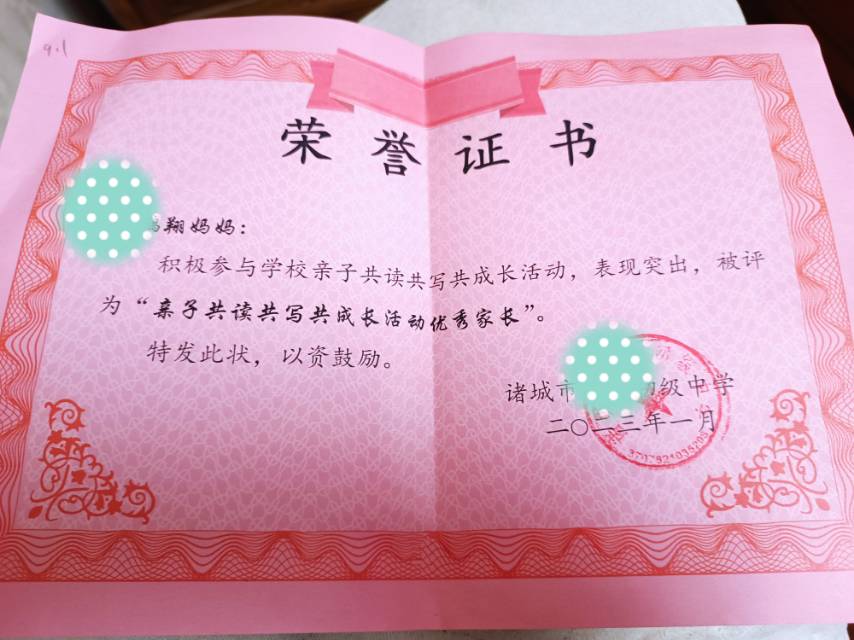 9.1
荣誉证书
翔妈妈：
积极参与学校亲子共读共写共成长活动，表现突出，被评
为“亲子共读共写共成长活动优秀家长”。
特发此状，以资鼓励。
诸城市 初级中学
二〇二三年一月